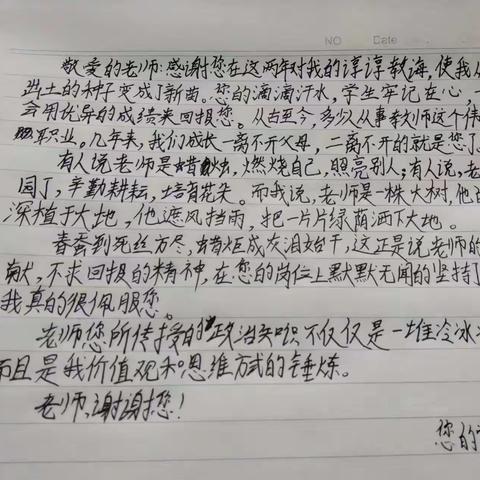 NO Date
敬爱的老师:感谢您在这两年对我的谆谆教诲,使我从
出土的种子变成了新苗。您的滴滴汗水,学生牢记在心,一
会用优异的成绩来回报您。从古至今,多少人从事教师这个伟
职业。几年来,我们成长一离不开父母,二离不开的就是您了
有人说老师是蜡烛,燃烧自己,照亮别人;有人说,老
园丁,辛勤耕耘,培育花朵。而我说,老师是一株大树,他
深植于大地,他遮风挡雨,把一片片绿荫洒下大地。
春蚕到死丝方尽,蜡炬成灰泪始干,这正是说老师的
献,不求回报的精神,在您的岗位上默默无闻的坚持了
我真的很佩服您。
老师您所传授的政治知识不仅仅是一堆冷冰
而且是我价值观和思维方式的锤炼。
老师,谢谢您!
您的